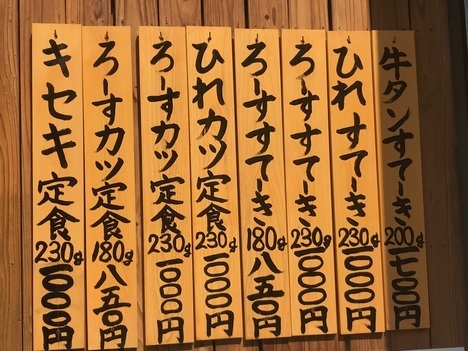 牛タンすてーき200g一七〇〇円
ひれすてーき230g一〇〇〇円
ろーすすてーき230g一〇〇〇円
ろーすすてーき180g八五〇円
ひれカツ定食230g一〇〇〇円
ろーすカツ定食230g一〇〇〇円
ろーすカツ定食180g八五〇円
キセキ定食230g一〇〇〇円